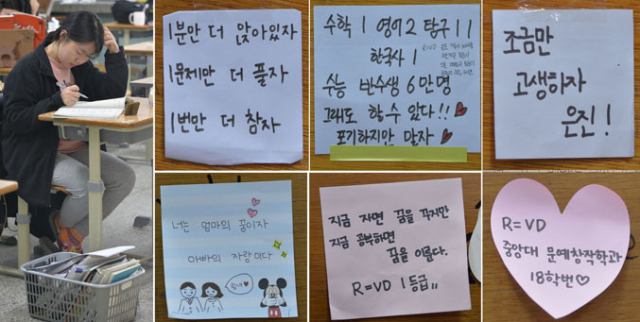 1분만 더 앉아있자
1문제만 더 풀자
1번만 더 참자
수학 1 영어 2 탐구 1 1
한국사 1
수능 반수생 6만명
그래도 할 수 있다!!
포기하지만 말자
조금만
고생하자
은진!
너는 엄마의 꿈이자
아빠의 자랑이다
지금 자면 꿈을 꾸지만
지금 공부하면
꿈을 이룬다.
R=VD 1등급
R=VD
중앙대 문예창작학과
18학번